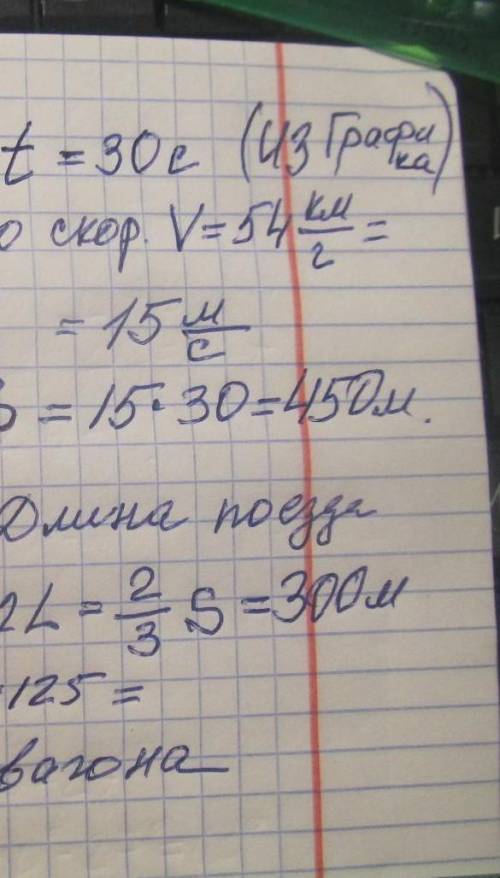 t = 30 с (из Графи
ка)
о скор. V = 54 км/г =
= 15 м/с
S = 15 · 30 = 450м.
Длина поезда
2L = 2/3 S = 300м
125 =
вагона